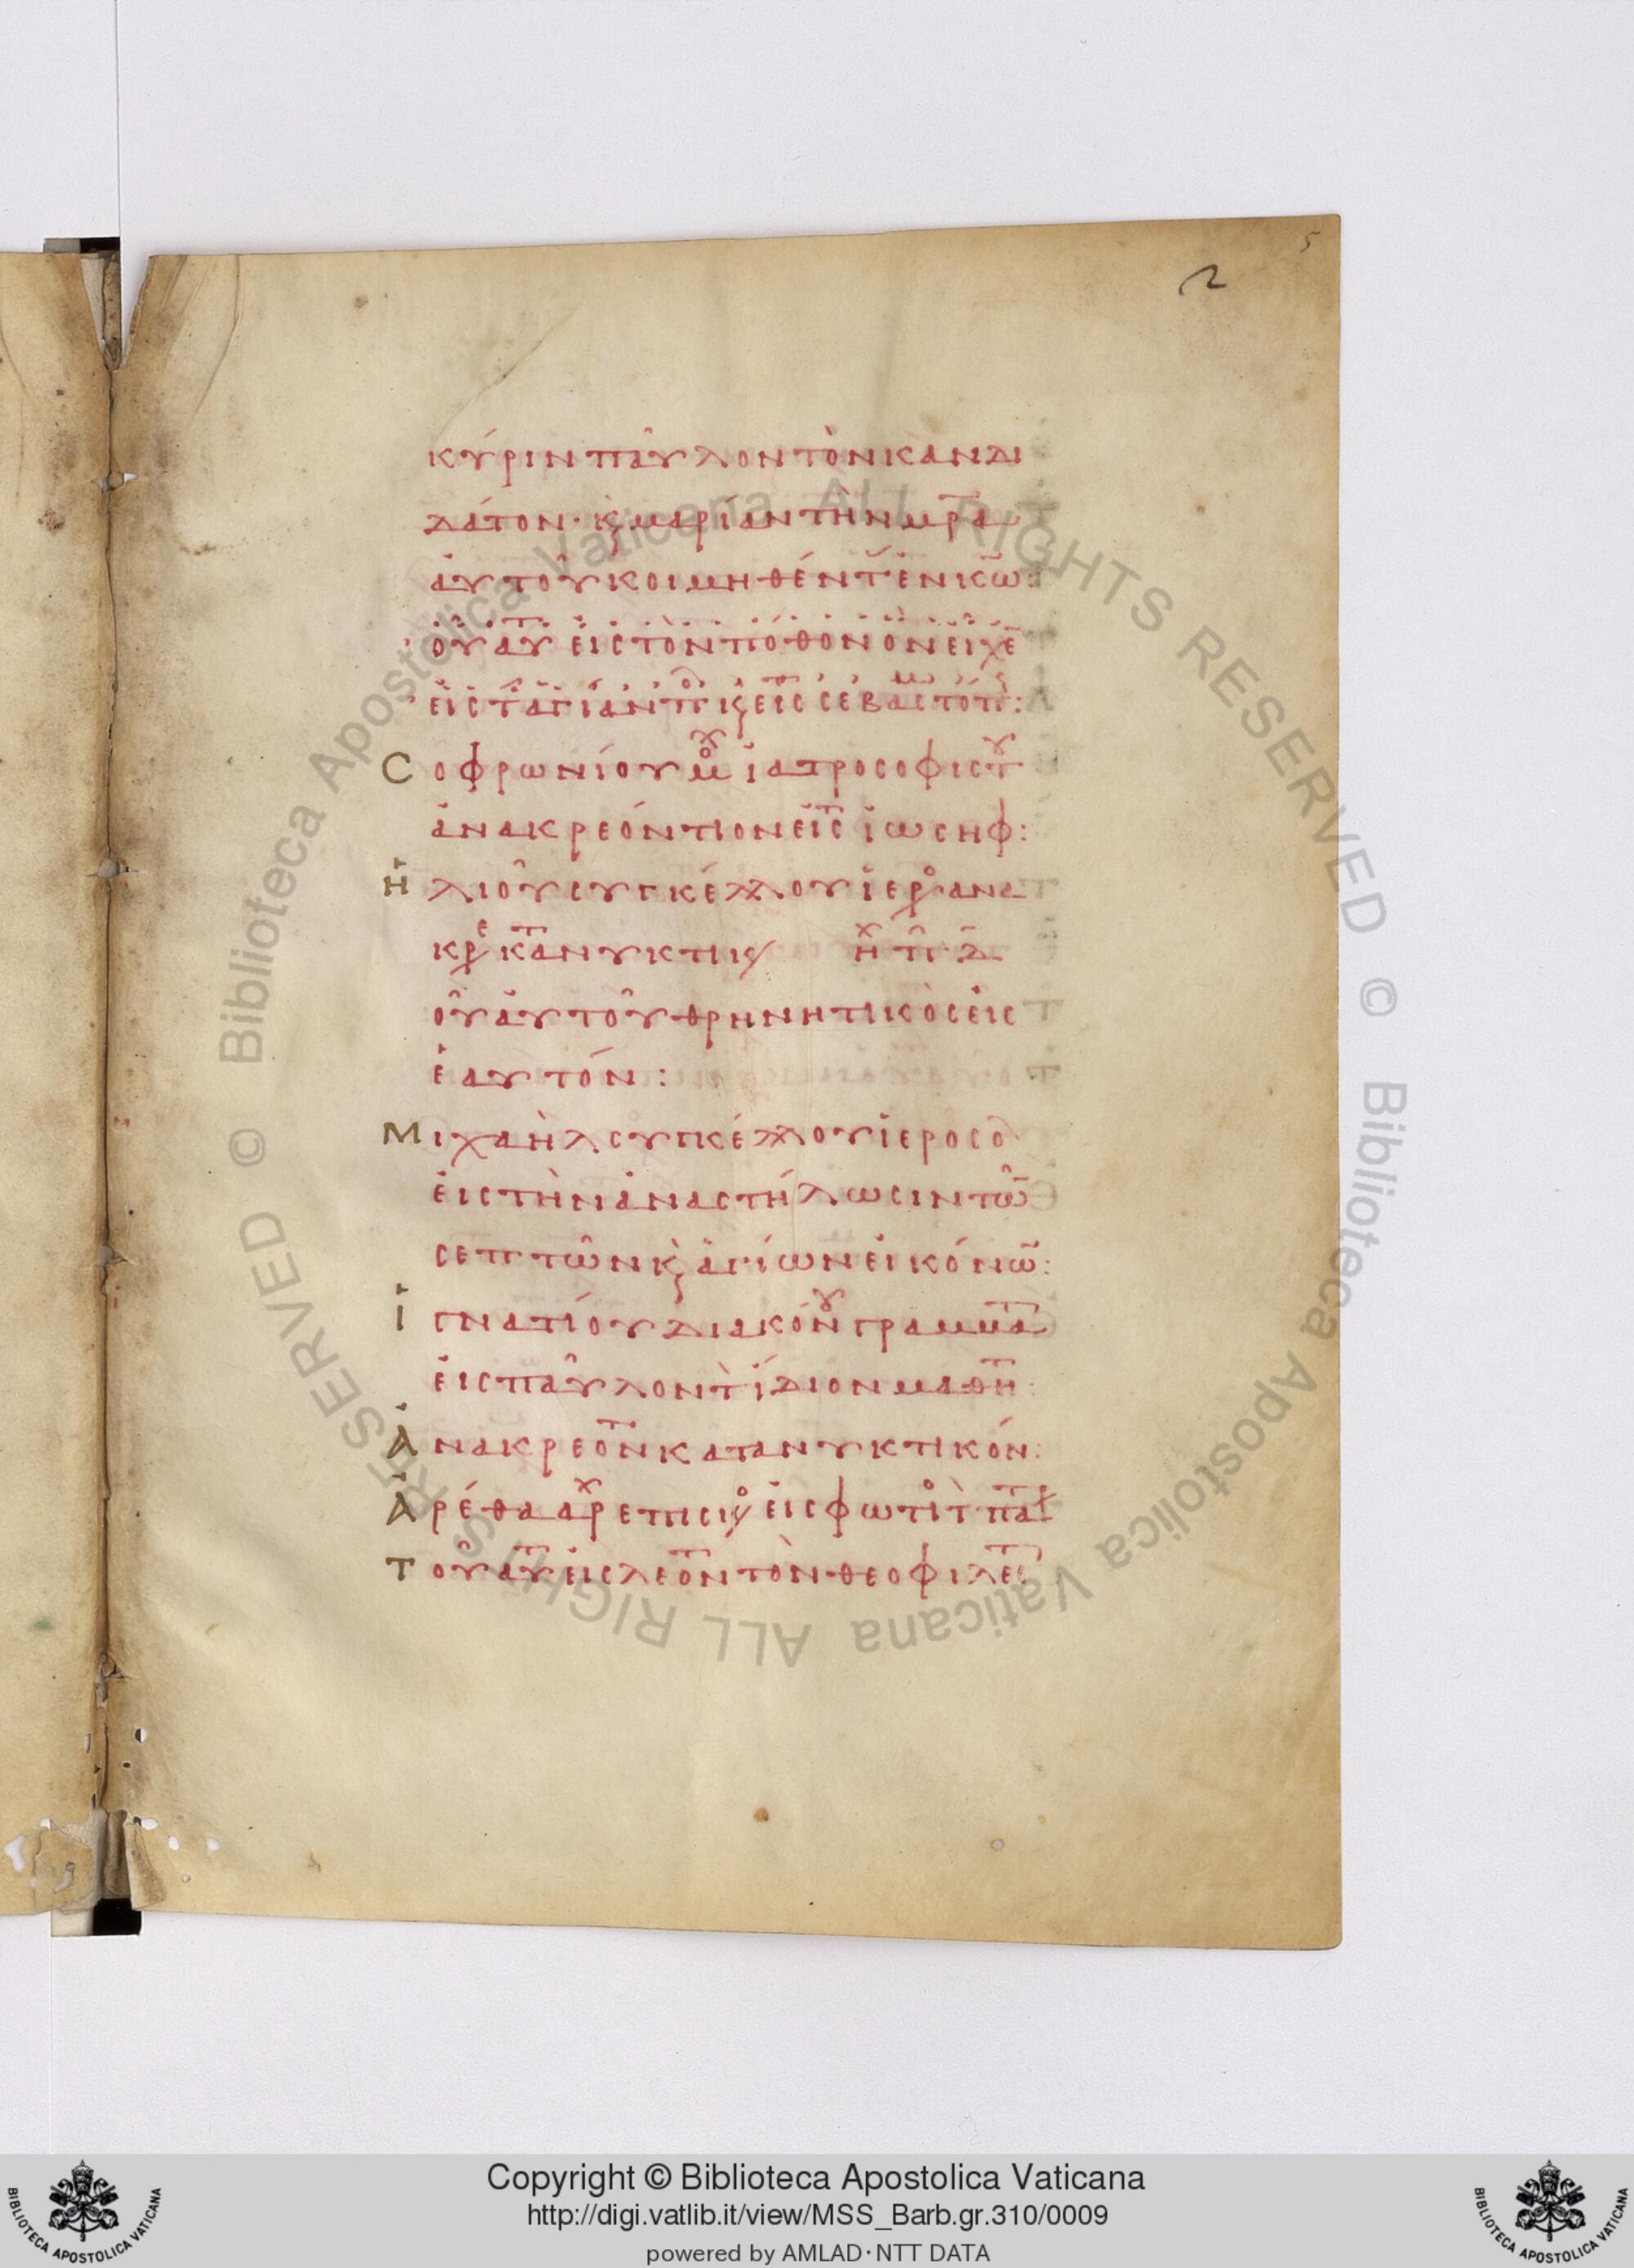 5
2
κύριν παῦλον τὸν κανδι
δάτον· κ μαρίαν τὴν μρα
ἀυτοῦ κοιμηθέντ ἐν κω:
τοῦ αυτ εἰς τὸν πόθον ὃν εἶχε
εἰς τ ἁγίαν π κ εἰς σεβαστ τοπ:
Σοφρωνίου μο ἰατροσοφιστου
ἀνακρεόντιον εἰς τ ἰωσηφ:
Ἠλιοῦ συγκέλλου ἱερο ανα
κρε κατανυκτικ
οῦ ἀυτοῦ θρηνητικὸς εἰς
ἑαυτόν:
Μιχαὴλ συγκέλλου ἱεροσολ
εἰς τὴν ἀναστήλωσιν τῶ
σεπτῶν κ ἁγίων εἰκόνω:
Ἰγνατίου διακόνου γραμματ
εἰς παῦλον τ ἴδιον μαθητ:
Ἀνακρεοντ κατανυκτικόν:
Ἀρέθα
Τοῦ αυτ εἰς λεοντ τὸν θεοφιλεστ
Biblioteca Apostolica Vaticana ALL RIGHTS RESERVED ©
Copyright © Biblioteca Apostolica Vaticana
http://digi.vatlib.it/view/MSS_Barb.gr.310/0009
powered by AMLAD·NTT DATA
BIBLIOTECA APOSTOLICA VATICANA
BIBLIOTECA APOSTOLICA VATICANA